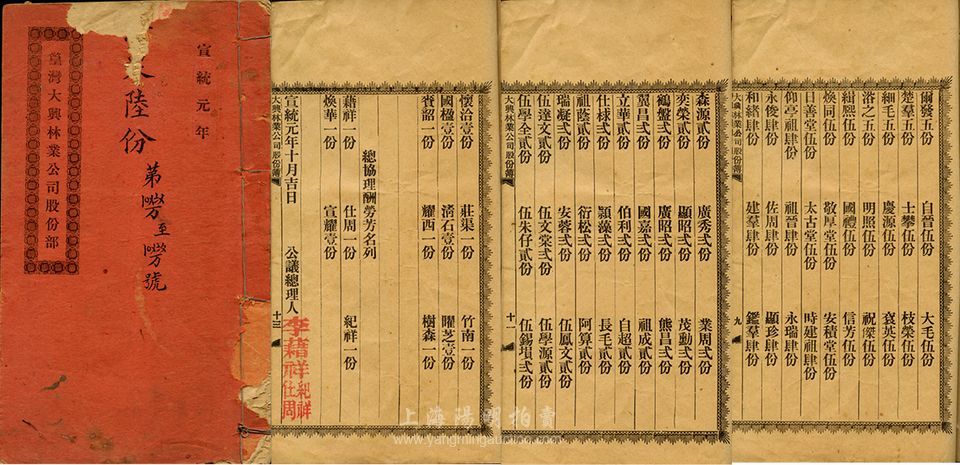 宣統元年
陸份
第 至 號
篁灣大興林業公司股份部
懷洽壹份 莊渠一份 竹南一份
國楹壹份 清石壹份 曜芝壹份
賚韶一份 耀西一份 樹森一份
總協理酬勞芳名列
藉祥一份 仕周一份 紀祥一份
煥華一份 宣耀壹份
宣統元年十月吉日 公議總理人 李藉祥 紀祥 仕周
大興林業公司股份簿 十三
森源貳份 廣秀弍份 業周弍份
奕榮貳份 顯昭弍份 茂勳弍份
鶴盤弍份 廣昭弍份 熊昌弍份
翼昌弍份 國嘉弍份 祖成貳份
立華貳份 伯利弍份 自超貳份
仕梂弍份 穎藻弍份 長毛貳份
祖蔭貳份 衍松弍份 阿算貳份
瑞凝弍份 安蓉弍份 伍鳳文貳份
伍達文貳份 伍文棠弍份 伍學源貳份
伍學全貳份 伍朱仔貳份 伍錫垻弍份
大興林業公司股份簿 十一
爾發五份 自晉伍份 大毛伍份
楚羣五份 士攀伍份 枝榮伍份
細毛五份 慶源伍份 袞英伍份
洛之五份 明照伍份 祝傑伍份
緝熙伍份 國禮伍份 信芳伍份
煥同伍份 敬厚堂伍份 安積堂伍份
日善堂伍份 太古堂伍份 時建祖肆份
仰亭祖肆份 祖晉肆份 永瑞肆份
永俊肆份 佐周肆份 顯珍肆份
和緒肆份 建羣肆份 鑑羣肆份
大興林業公司股份簿 九
上海陽明拍賣
www.yangmingauction.com